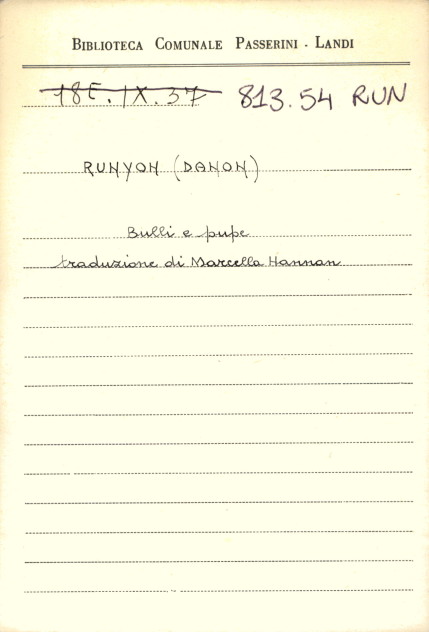 BIBLIOTECA COMUNALE PASSERINI - LANDI
18E.IX.37 813.54 RUN
RUNYON (DAMON)
Bulli e pupe
traduzione di Marcella Hannan